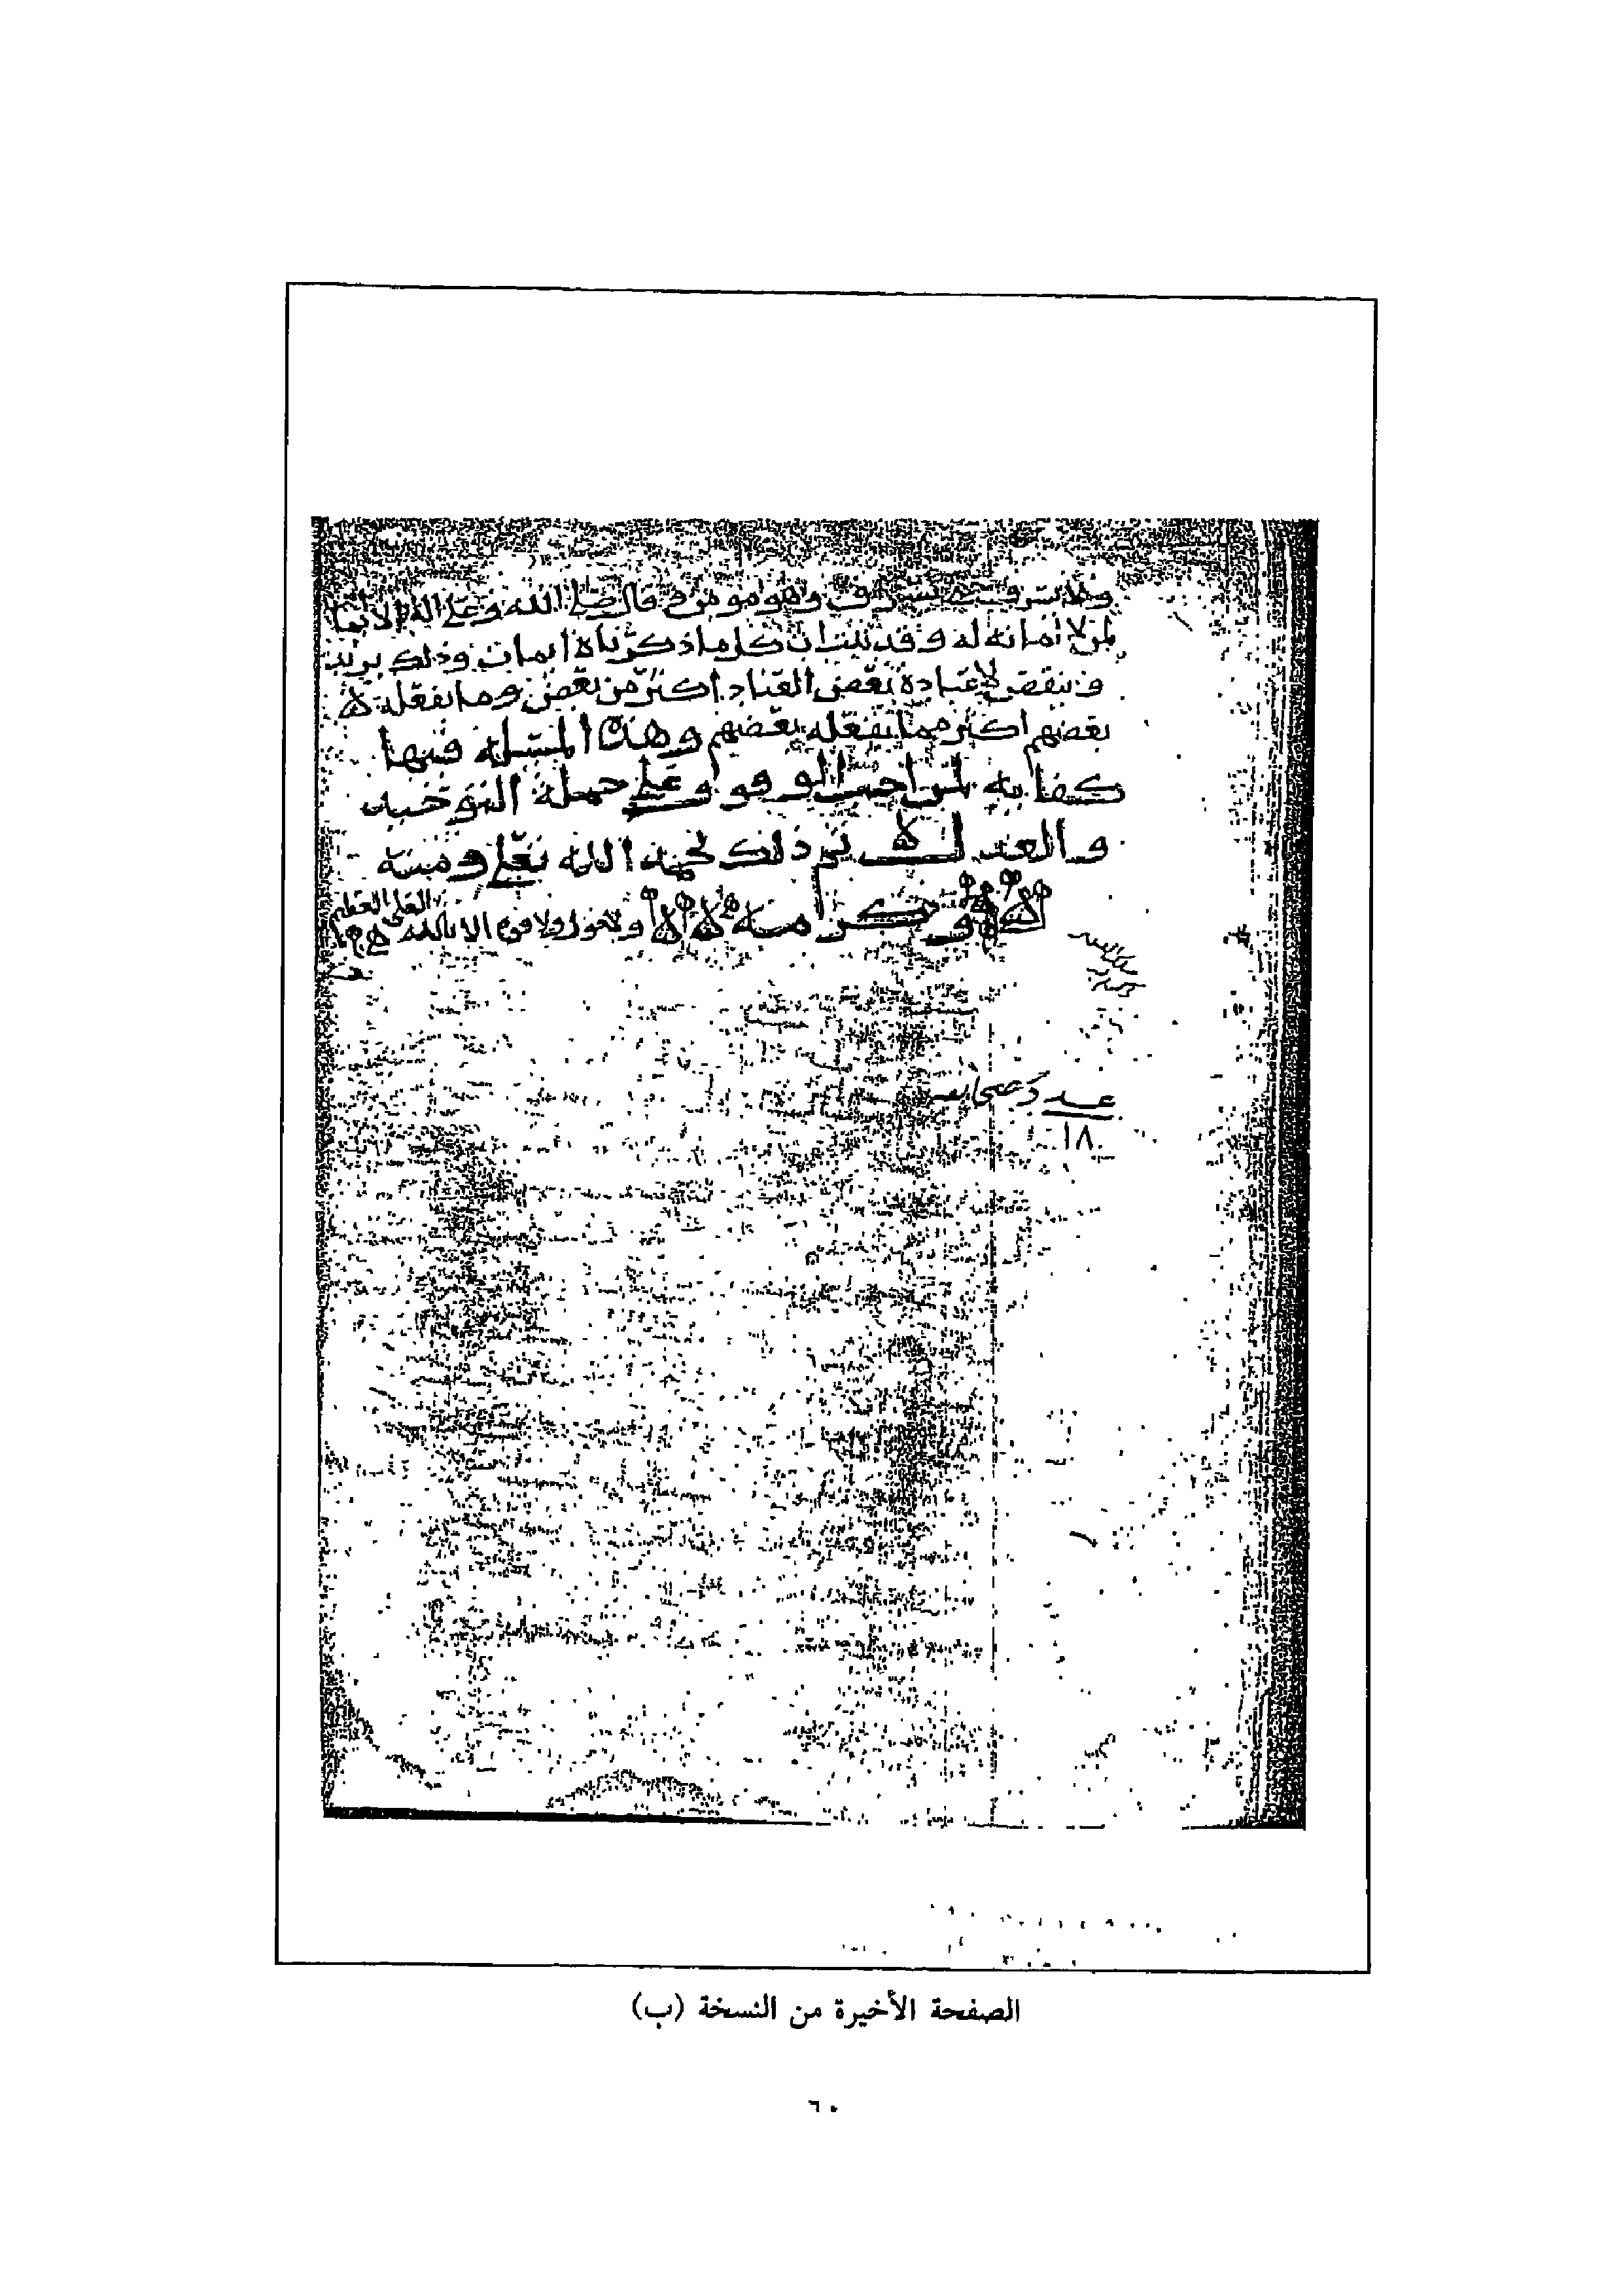 ولا يسرق حين يسرق وهو مومن وقال صلى الله وعلى اله لا ايمان
لمن لا امانه له وقد ثبت ان كل ما ذكرناه ايمان وذلك يزيد
وينقص لان عبادة بعض العباد اكثر من بعض وما يفعله
بعضهم اكثر مما يفعله بعضهم وهذه المسله فيها
كفايه لمن احب الوقوف على جملة التوحيد
والعدل تم ذلك بحمد الله تعلى ومنه
وكرامته ولا حول ولا قوة الا بالله العلي العظيم
عدد
١٨
الصفحة الأخيرة من النسخة (ب)
٦٠